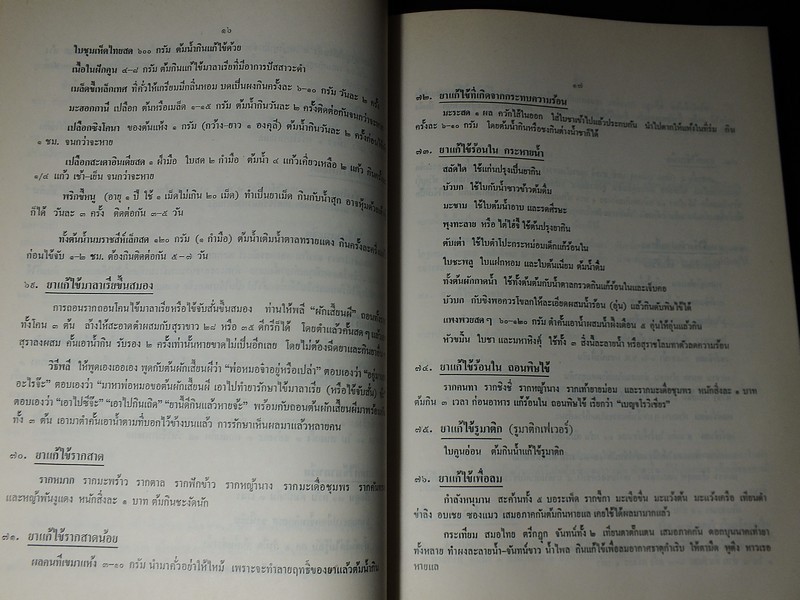 ๑๖
ใบชุมเห็ดไทยสด ๖๐๐ กรัม ต้มน้ำกินแก้ไข้ด้วย
เนื้อในฝักคูน ๔-๘ กรัม ต้มกินแก้ไข้มาลาเรียที่มีอาการปัสสาวะดำ
เมล็ดขี้เหล็กเทศ ที่คั่วให้เกรียมมีกลิ่นหอม บดเป็นผงกินครั้งละ ๖-๑๐ กรัม วันละ ๒ ครั้ง
มะฮอกกานี เปลือก ต้นหรือเมล็ด ๑-๑๕ กรัม ต้มน้ำกินวันละ ๒ ครั้งติดต่อกันจนกว่าจะหาย
เปลือกซิงโคนา ของต้นแห้ง ๑ กรัม (กว้าง-ยาว ๑ องคุลี) ต้มน้ำกินวันละ ๒ ครั้งก่อนไข้จับ
๑ ชม. จนกว่าจะหาย
เปลือกสะเดาอินเดียสด ๑ กำมือ ใบสด ๒ กำมือ ต้มน้ำ ๔ แก้วเคี่ยวเหลือ ๒ แก้ว กินครั้งละ
๑/๔ แก้ว เช้า-เย็น จนกว่าจะหาย
พริกขี้หนู (อายุ ๑ ปี ใช้ ๑ เม็ดไม่เกิน ๒๐ เม็ด) ทำเป็นยาเม็ด กินกับน้ำสุก อาจหุ้มด้วย
ก็ได้ วันละ ๓ ครั้ง ติดต่อกัน ๓-๕ วัน
ทั้งต้นน้ำนมราชสีห์เล็กสด ๑๒๐ กรัม (๑ กำมือ) ต้มน้ำเติมน้ำตาลทรายแดง กินครั้งละครึ่ง
ก่อนไข้จับ ๑-๒ ชม. ต้องกินติดต่อกัน ๕-๗ วัน
๖๙. ยาแก้ไข้มาลาเรียขึ้นสมอง
การถอนรากถอนโคนไข้มาลาเรียหรือไข้จับสั่นขึ้นสมอง ท่านให้พลี "ผักเสี้ยนผี" ถอน
ทั้งโคน ๓ ต้น ล้างให้สะอาดตำผสมกับสุราขาว ๒๘ หรือ ๓๕ ดีกรีก็ได้ โดยตำแล้วคั้นสดๆ
สุราลงผสม คั้นเอาน้ำกิน รับรอง ๒ ครั้งเท่านั้นหายขาดไม่เป็นอีกเลย โดยไม่ต้องฉีดยาและกินยา
วิธีพลี ให้พูดเองเออเอง พูดกับต้นผักเสี้ยนผีว่า "พ่อหมอจ๋าอยู่หรือเปล่า" ตอบเองว่า
อะไรจ๊ะ" ตอบเองว่า "มาหาพ่อหมอขอต้นผักเสี้ยนผี เอาไปทำยารักษาไข้มาลาเรีย (หรือไข้จับสั่น)
ตอบเองว่า "เอาไปซีจ๊ะ" "เอาไปกินเถิด" "ยานี้ดีกินแล้วหายจ้ะ" พร้อมกับถอนต้นผักเสี้ยนผีมาพร้อม
ทั้ง ๓ ต้น เอามาตำคั้นเอาน้ำตามที่บอกไว้ข้างบนแล้ว การรักษาเห็นผลมาแล้วหลายคน
๗๐. ยาแก้ไข้รากสาด
รากหมาก รากมะพร้าว รากตาล รากฟักข้าว รากหญ้านาง รากมะเดื่อชุมพร
และหญ้าพันงูแดง หนักสิ่งละ ๑ บาท ต้มกินชะงัดนัก
๗๑. ยาแก้ไข้รากสาดน้อย
ผลคนทีเขมาแห้ง ๓-๑๐ กรัม นำมาคั่วอย่าให้ไหม้ เพราะจะทำลายฤทธิ์ของยาแล้วต้มน้ำกิน
๗๒. ยาแก้ไข้ที่เกิดจากกระทบความร้อน
มะระสด ๑ ผล ควักไส้ในออก ใส่ใบชาเข้าไปแล้วประกบกัน นำไปตากให้แห้งในที่ร่ม กิน
ครั้งละ ๖-๑๐ กรัม โดยต้มน้ำกินหรือชงกินต่างน้ำชาก็ได้
๗๓. ยาแก้ไข้ร้อนใน กระหายน้ำ
สลัดได ใช้แก่นปรุงเป็นยากิน
บัวบก ใช้ใบกับน้ำซาวข้าวต้มดื่ม
มะขาม ใช้ใบต้มน้ำอาบ และรดศีรษะ
พุงทะลาย หรือ ไต้ไฮ้จี้ ใช้ต้นปรุงยากิน
คับเต่า ใช้ใบตำโปะกระหม่อมเด็กแก้ร้อนใน
ใบชะพลู ใบแฝกหอม และใบต้นเนียม ต้มน้ำดื่ม
ทั้งต้นผักกาดน้ำ ใช้ทั้งต้นต้มกับน้ำตาลกรวดกินแก้ร้อนในและเจ็บคอ
บัวบก กับขิงพอควรโขลกให้ละเอียดผสมน้ำร้อน (อุ่น) แล้วกินดับพิษไข้ได้
แพงพวยสดๆ ๖๐-๑๒๐ กรัม ตำคั้นเอาน้ำผสมน้ำผึ้งเดือน ๕ อุ่นให้อุ่นแล้วกิน
หัวขมิ้น ใบชา และมหาหิงคุ์ ใช้ทั้ง ๓ สิ่งนี้ละลายน้ำ หรือสุราชโลมทาตัวลดความร้อน
๗๔. ยาแก้ไข้ร้อนใน ถอนพิษไข้
รากคนทา รากชิงชี่ รากหญ้านาง รากเท้ายายม่อม และรากมะเดื่อชุมพร หนักสิ่งละ ๑ บาท
ต้มกิน ๓ เวลา ก่อนอาหาร แก้ร้อนใน ถอนพิษไข้ เรียกว่า "เบญจโรวิเชียร"
๗๕. ยาแก้ไข้รูมาติก (รูมาติกเฟเวอร์)
ใบคูนอ่อน ต้มกินน้ำแก้ไข้รูมาติก
๗๖. ยาแก้ไข้เพื่อลม
กำลังหนุมาน สะค้านทั้ง ๕ บอระเพ็ด รากขี้กา มะเขือขื่น มะแว้งต้น มะแว้งเครือ เทียนดำ
ข่าลิง อบเชย ซองแมว เสมอภาคกันต้มกินหายแล เคยใช้ได้ผลมามากแล้ว
กระเทียม สมอไทย ตรีกฏุก จันทน์ทั้ง ๒ เทียนตาตั๊กแตน เสมอภาคกัน ดอกบุนนาคเท่ายา
ทั้งหลาย ทำผงละลายน้ำ-จันทน์ขาว น้ำไพล กินแก้ไข้เพื่อลมอากาศธาตุกำเริบ ให้ตามืด หูตึง หาวเรอ
หายแล